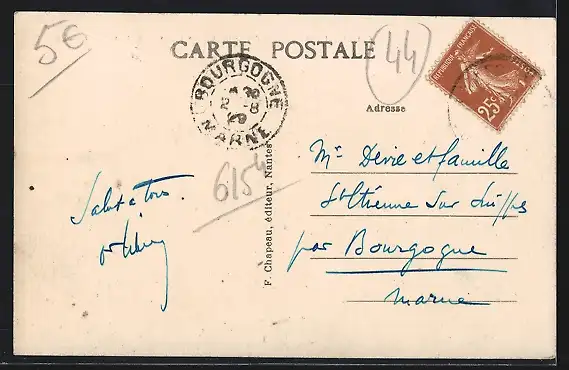 5€
CARTE POSTALE
44
Adresse
BOURGOGNE
2 -8
29
MARNE
RÉPUBLIQUE FRANÇAISE
25c
615
F. Chapeau, éditeur, Nantes
Salut à tous
Mr Dérie et famille
St Étienne sur Suippes
par Bourgogne
Marne